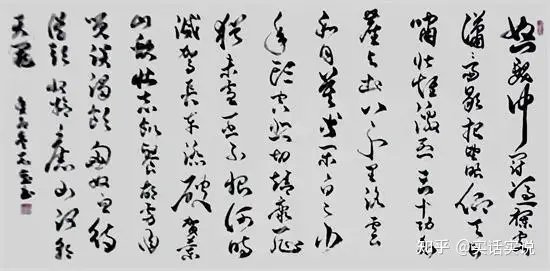 怒髮冲冠憑欄處
瀟雨歇抬望眼仰天長
嘯壯懷激烈三十功名
塵與土八千里路雲
和月莫等閑白了少
年頭空悲切靖康恥
猶未雪臣子恨何時
滅駕長車踏破賀蘭
山缺壯志飢餐胡虜肉
笑談渴飲匈奴血待
從頭收拾舊山河朝
天闕
知乎 @实话实说